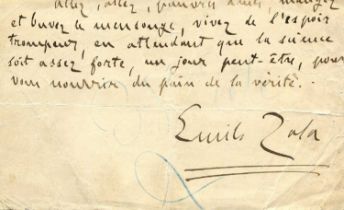 allez, allez, pauvres âmes, mangez
et buvez le mensonge, vivez de l'espoir
trompeur, en attendant que la science
soit assez forte, un jour peut-être, pour
vous nourrir du pain de la vérité.
Emile Zola